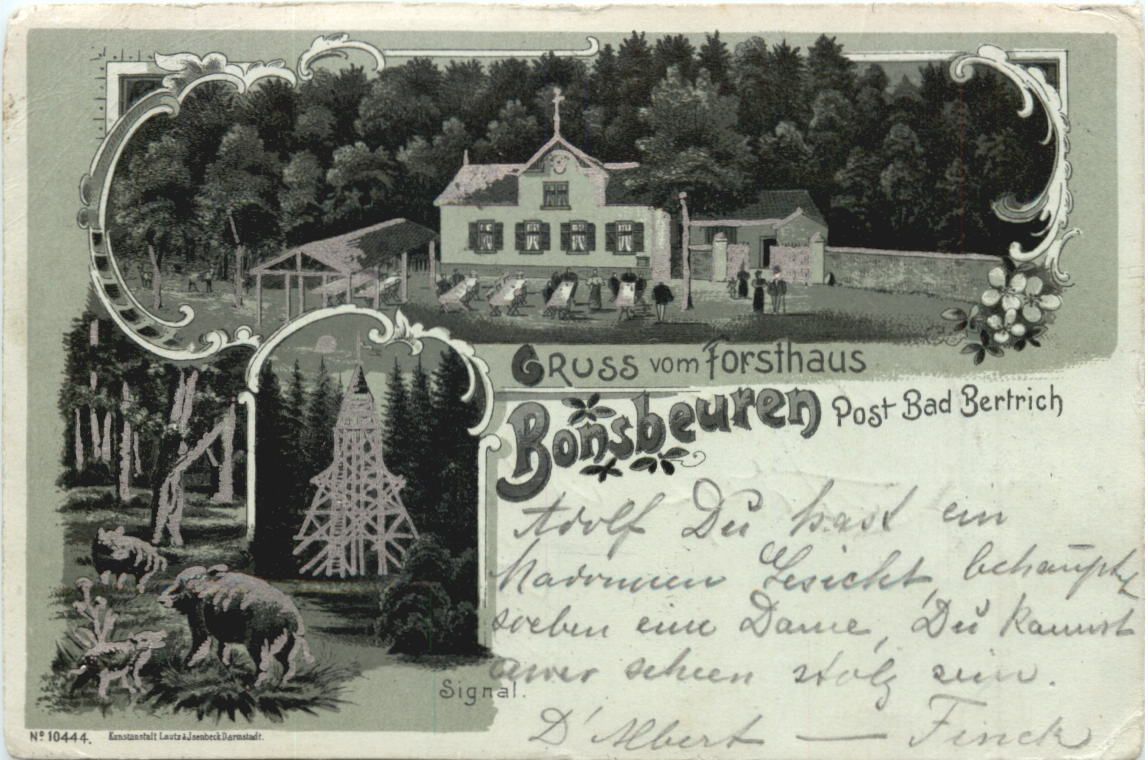 Gruss vom Forsthaus
Bonsbeuren Post Bad Bertrich
Adolf Du hast ein
Madonnen Gesicht, behaupt
soeben eine Dame, Du kannst
schon stolz sein.
D'Albert — Finck
Signal.
No 10444. Kunstanstalt Lautz & Jsenbeck Darmstadt.